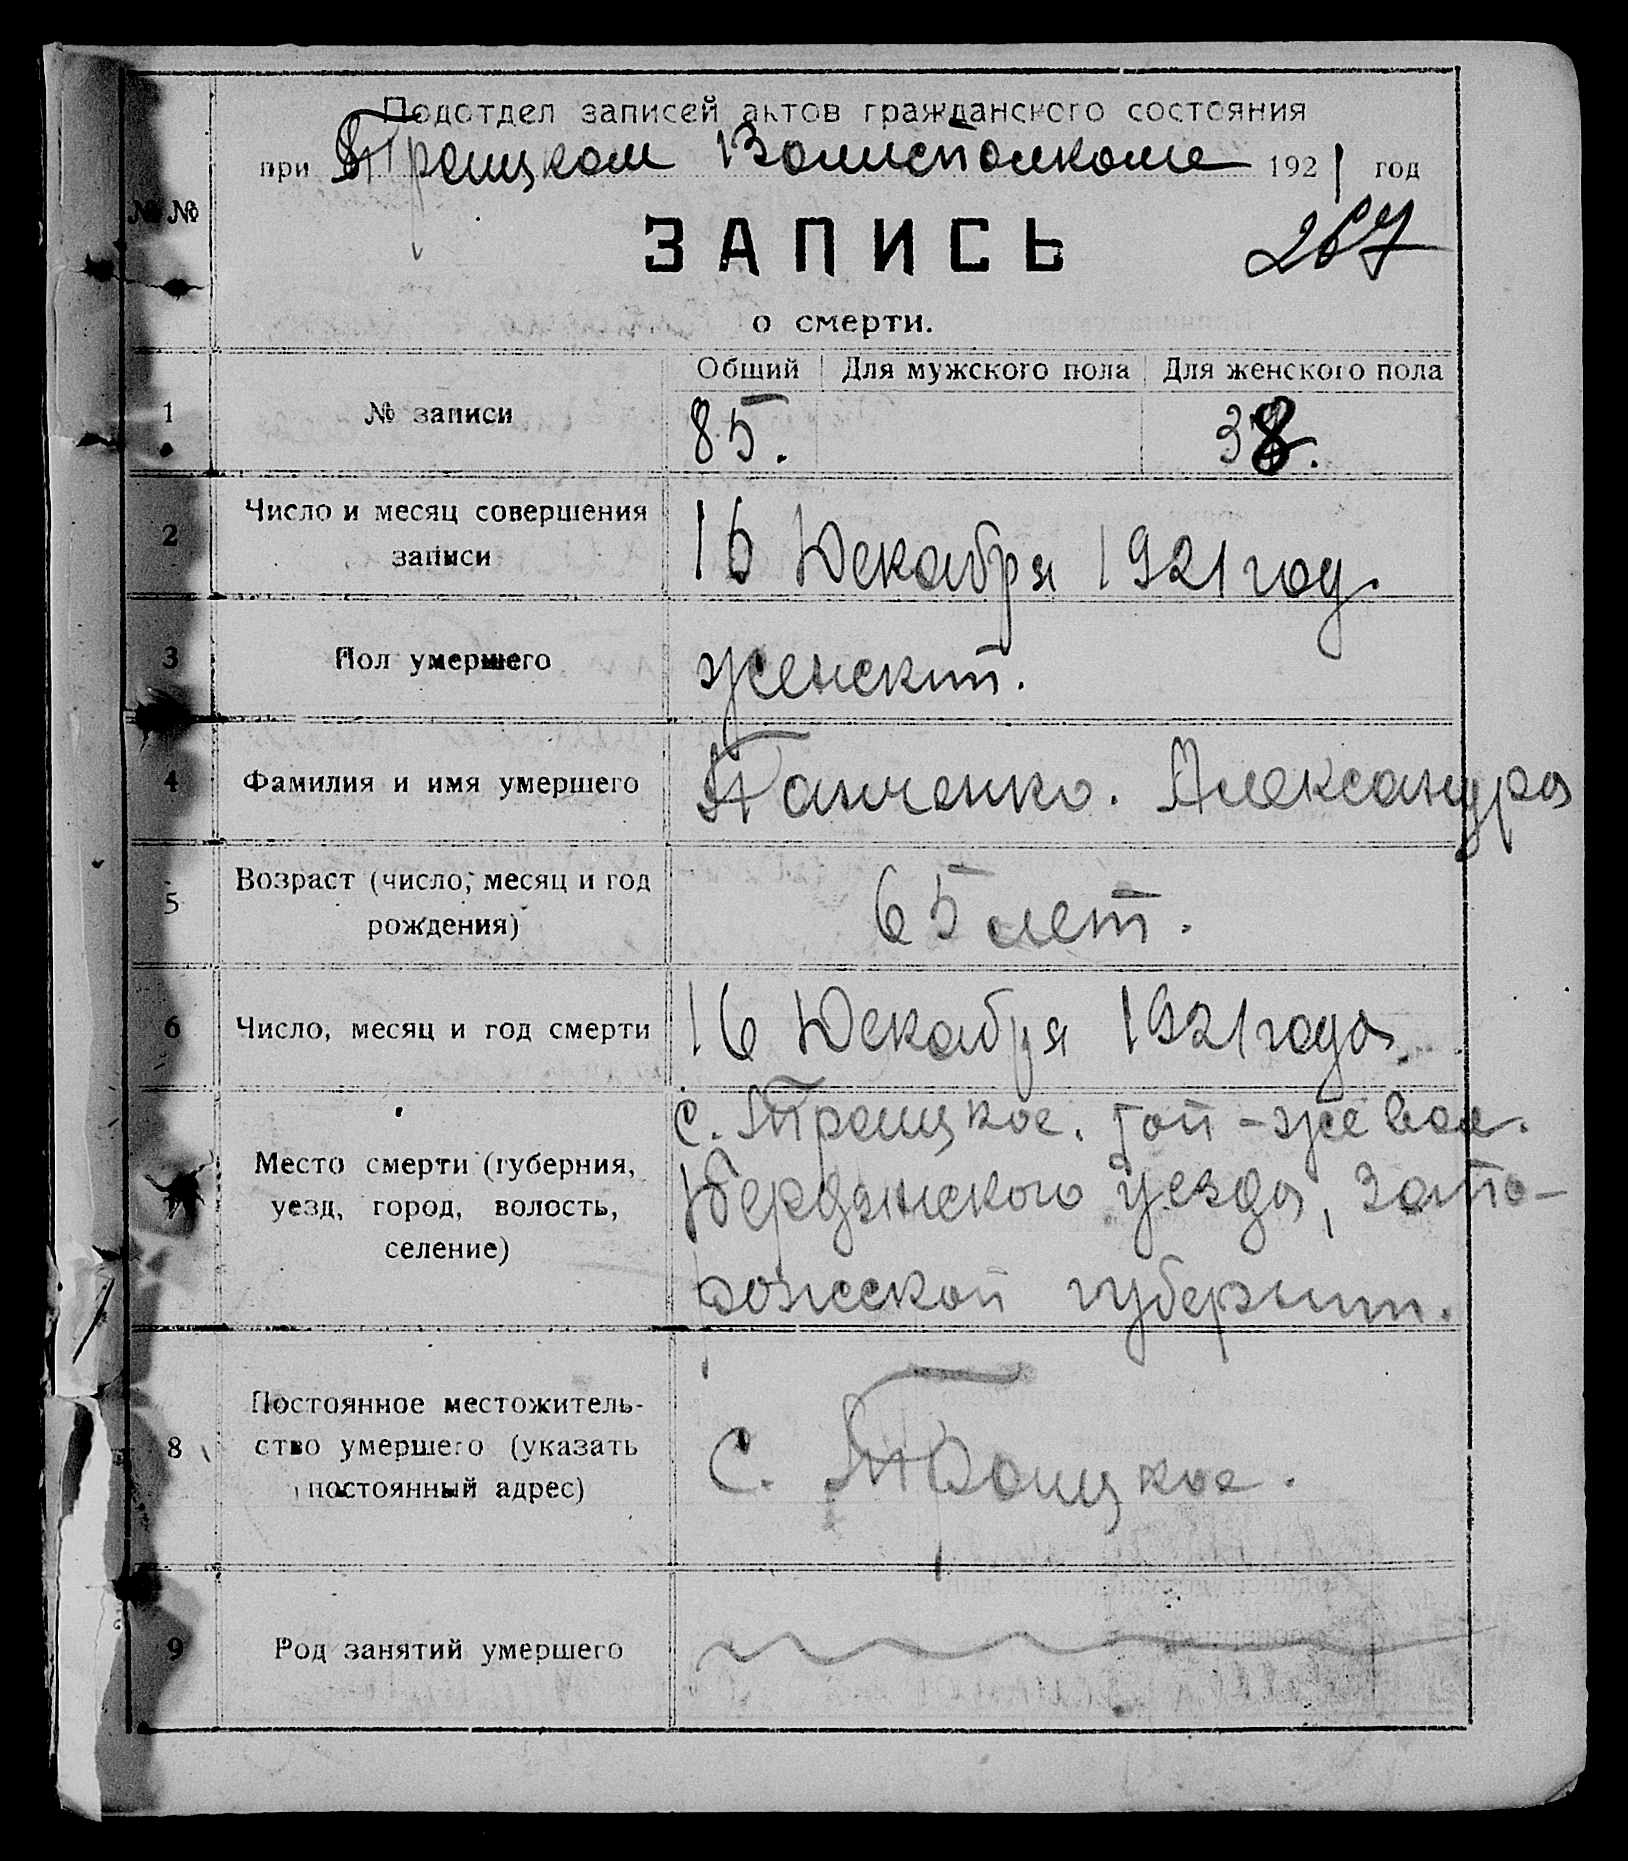 Подотдел записей актов гражданского состояния
при Троицком Волисполкоме 1921 год
№ №
ЗАПИСЬ
267
о смерти.
Общий Для мужского пола Для женского пола
1 № записи 85. 38.
2 Число и месяц совершения
записи
16 Декабря 1921 год.
3 Пол умершего женский.
4 Фамилия и имя умершего Панченко. Александра
5 Возраст (число, месяц и год
рождения)
65 лет.
6 Число, месяц и год смерти 16 Декабря 1921 года.
Место смерти (губерния,
уезд, город, волость,
селение)
с. Троицкое. той-же вол.
Бердянского уезда, Запо-
рожской губернии.
8 Постоянное местожитель-
ство умершего (указать
постоянный адрес)
с. Троицкое.
9 Род занятий умершего